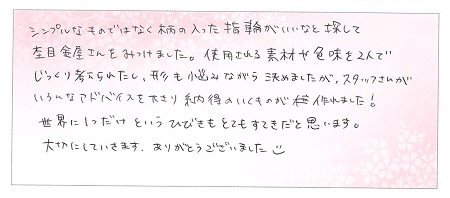 シンプルなものではなく柄の入った指輪がいいなと探して
杢目金屋さんをみつけました。使用される素材や色味を2人で
じっくり考えられたし、形も小悩みながら決めましたが、スタッフさんが
いろんなアドバイスを下さり納得のいくものが作れました!
世界に1つだけというひびきもとてもすてきだと思います。
大切にしていきます。ありがとうございました